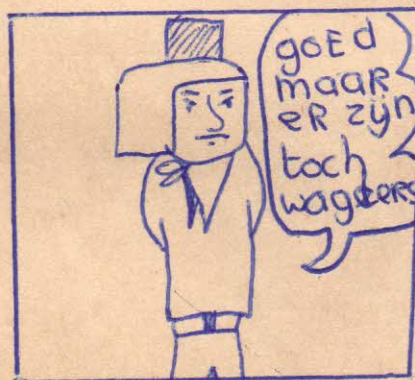 goEd
maaR
eR zijn
toch
wagters